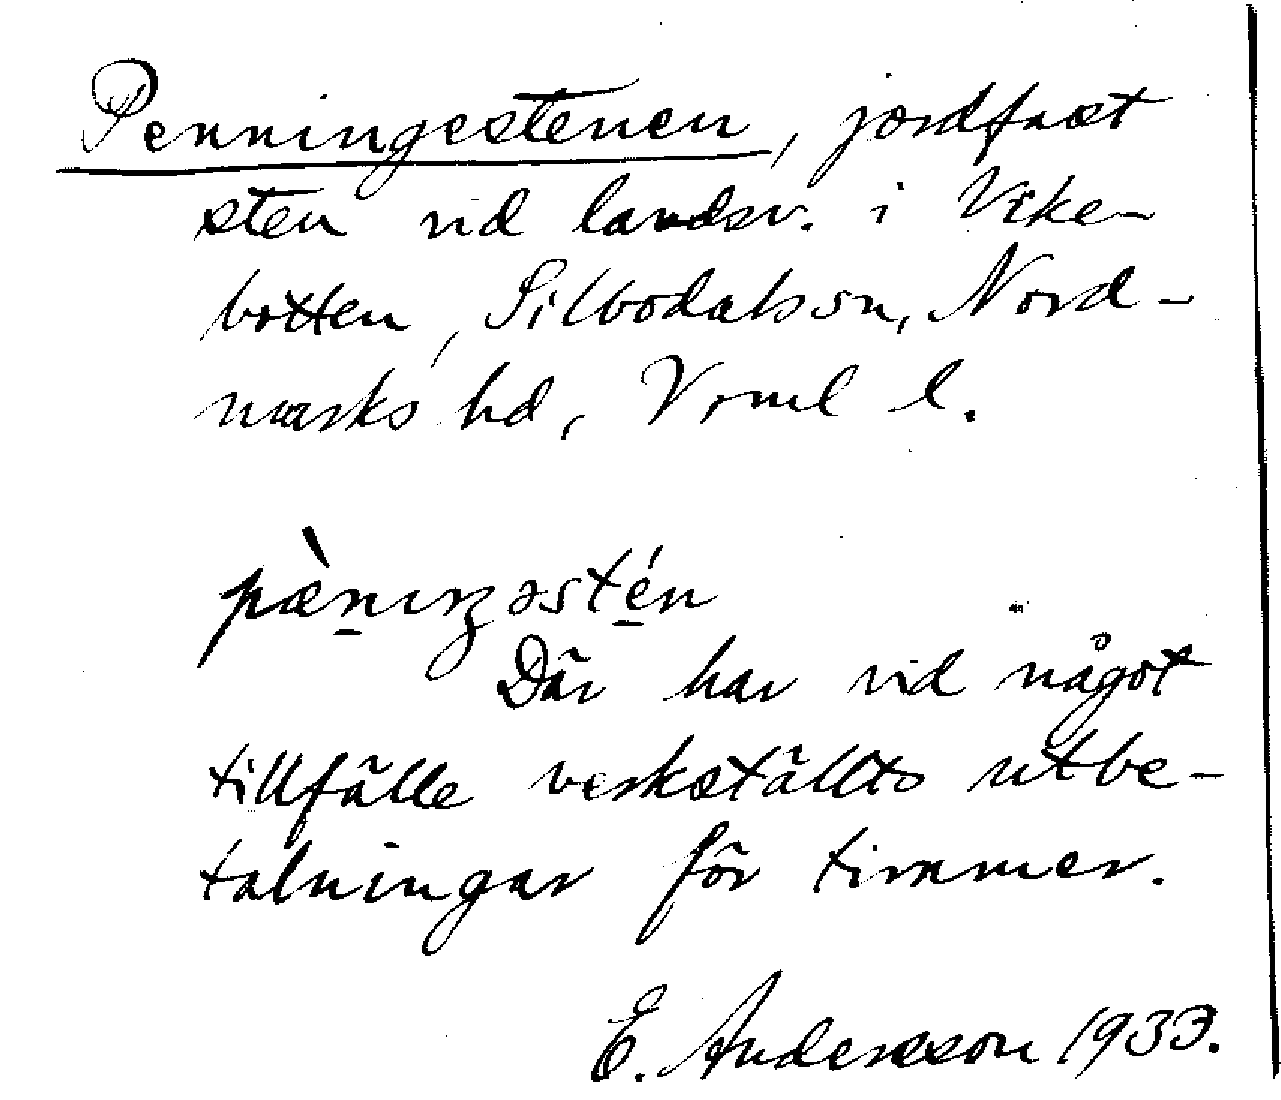 Penningestenen, jordfast
sten vid landsv. i Vike-
botten, Silbodals sn, Nord-
marks hd, Vrml l.
pæ̀n̲ıŋəsté̲n
Där har vid något
tillfälle verkställts utbe-
talningar för timmer.
E. Andersson 1933.